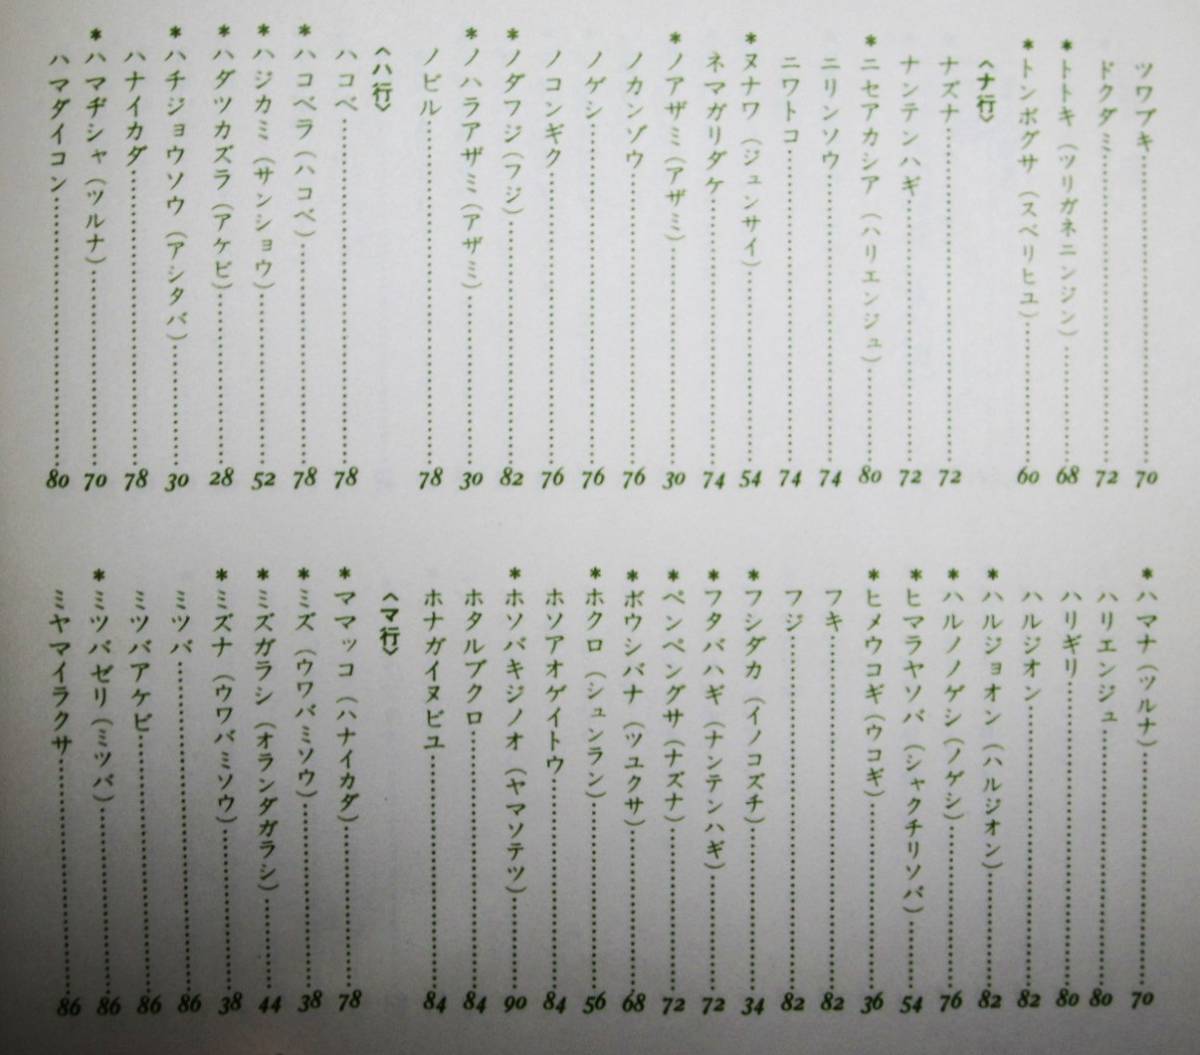 ツワブキ……70
ドクダミ……72
＊トトキ（ツリガネニンジン）……68
＊トンボグサ（スベリヒユ）……60
〈ナ行〉
ナズナ……72
ナンテンハギ……72
＊ニセアカシア（ハリエンジュ）……80
ニリンソウ……74
ニワトコ……74
＊ヌナワ（ジュンサイ）……54
ネマガリダケ……74
＊ノアザミ（アザミ）……30
ノカンゾウ……76
ノゲシ……76
ノコンギク……76
＊ノダフジ（フジ）……82
＊ノハラアザミ（アザミ）……30
ノビル……78
〈ハ行〉
ハコベ……78
＊ハコベラ（ハコベ）……78
＊ハジカミ（サンショウ）……52
＊ハダツカズラ（アケビ）……28
＊ハチジョウソウ（アシタバ）……30
ハナイカダ……78
＊ハマヂシャ（ツルナ）……70
ハマダイコン……80
＊ハマナ（ツルナ）……70
ハリエンジュ……80
ハリギリ……80
ハルジオン……82
＊ハルジョオン（ハルジオン）……82
＊ハルノノゲシ（ノゲシ）……76
＊ヒマラヤソバ（シャクチリソバ）……54
＊ヒメウコギ（ウコギ）……36
フキ……82
フジ……82
＊フシダカ（イノコズチ）……34
＊フタバハギ（ナンテンハギ）……72
＊ペンペングサ（ナズナ）……72
＊ボウシバナ（ツユクサ）……68
＊ホクロ（シュンラン）……56
ホソアオゲイトウ……84
＊ホソバキジノオ（ヤマソテツ）……90
ホタルブクロ……84
ホナガイヌビユ……84
〈マ行〉
＊ママッコ（ハナイカダ）……78
＊ミズ（ウワバミソウ）……38
＊ミズガラシ（オランダガラシ）……44
＊ミズナ（ウワバミソウ）……38
ミツバ……86
ミツバアケビ……86
＊ミツバゼリ（ミツバ）……86
ミヤマイラクサ……86